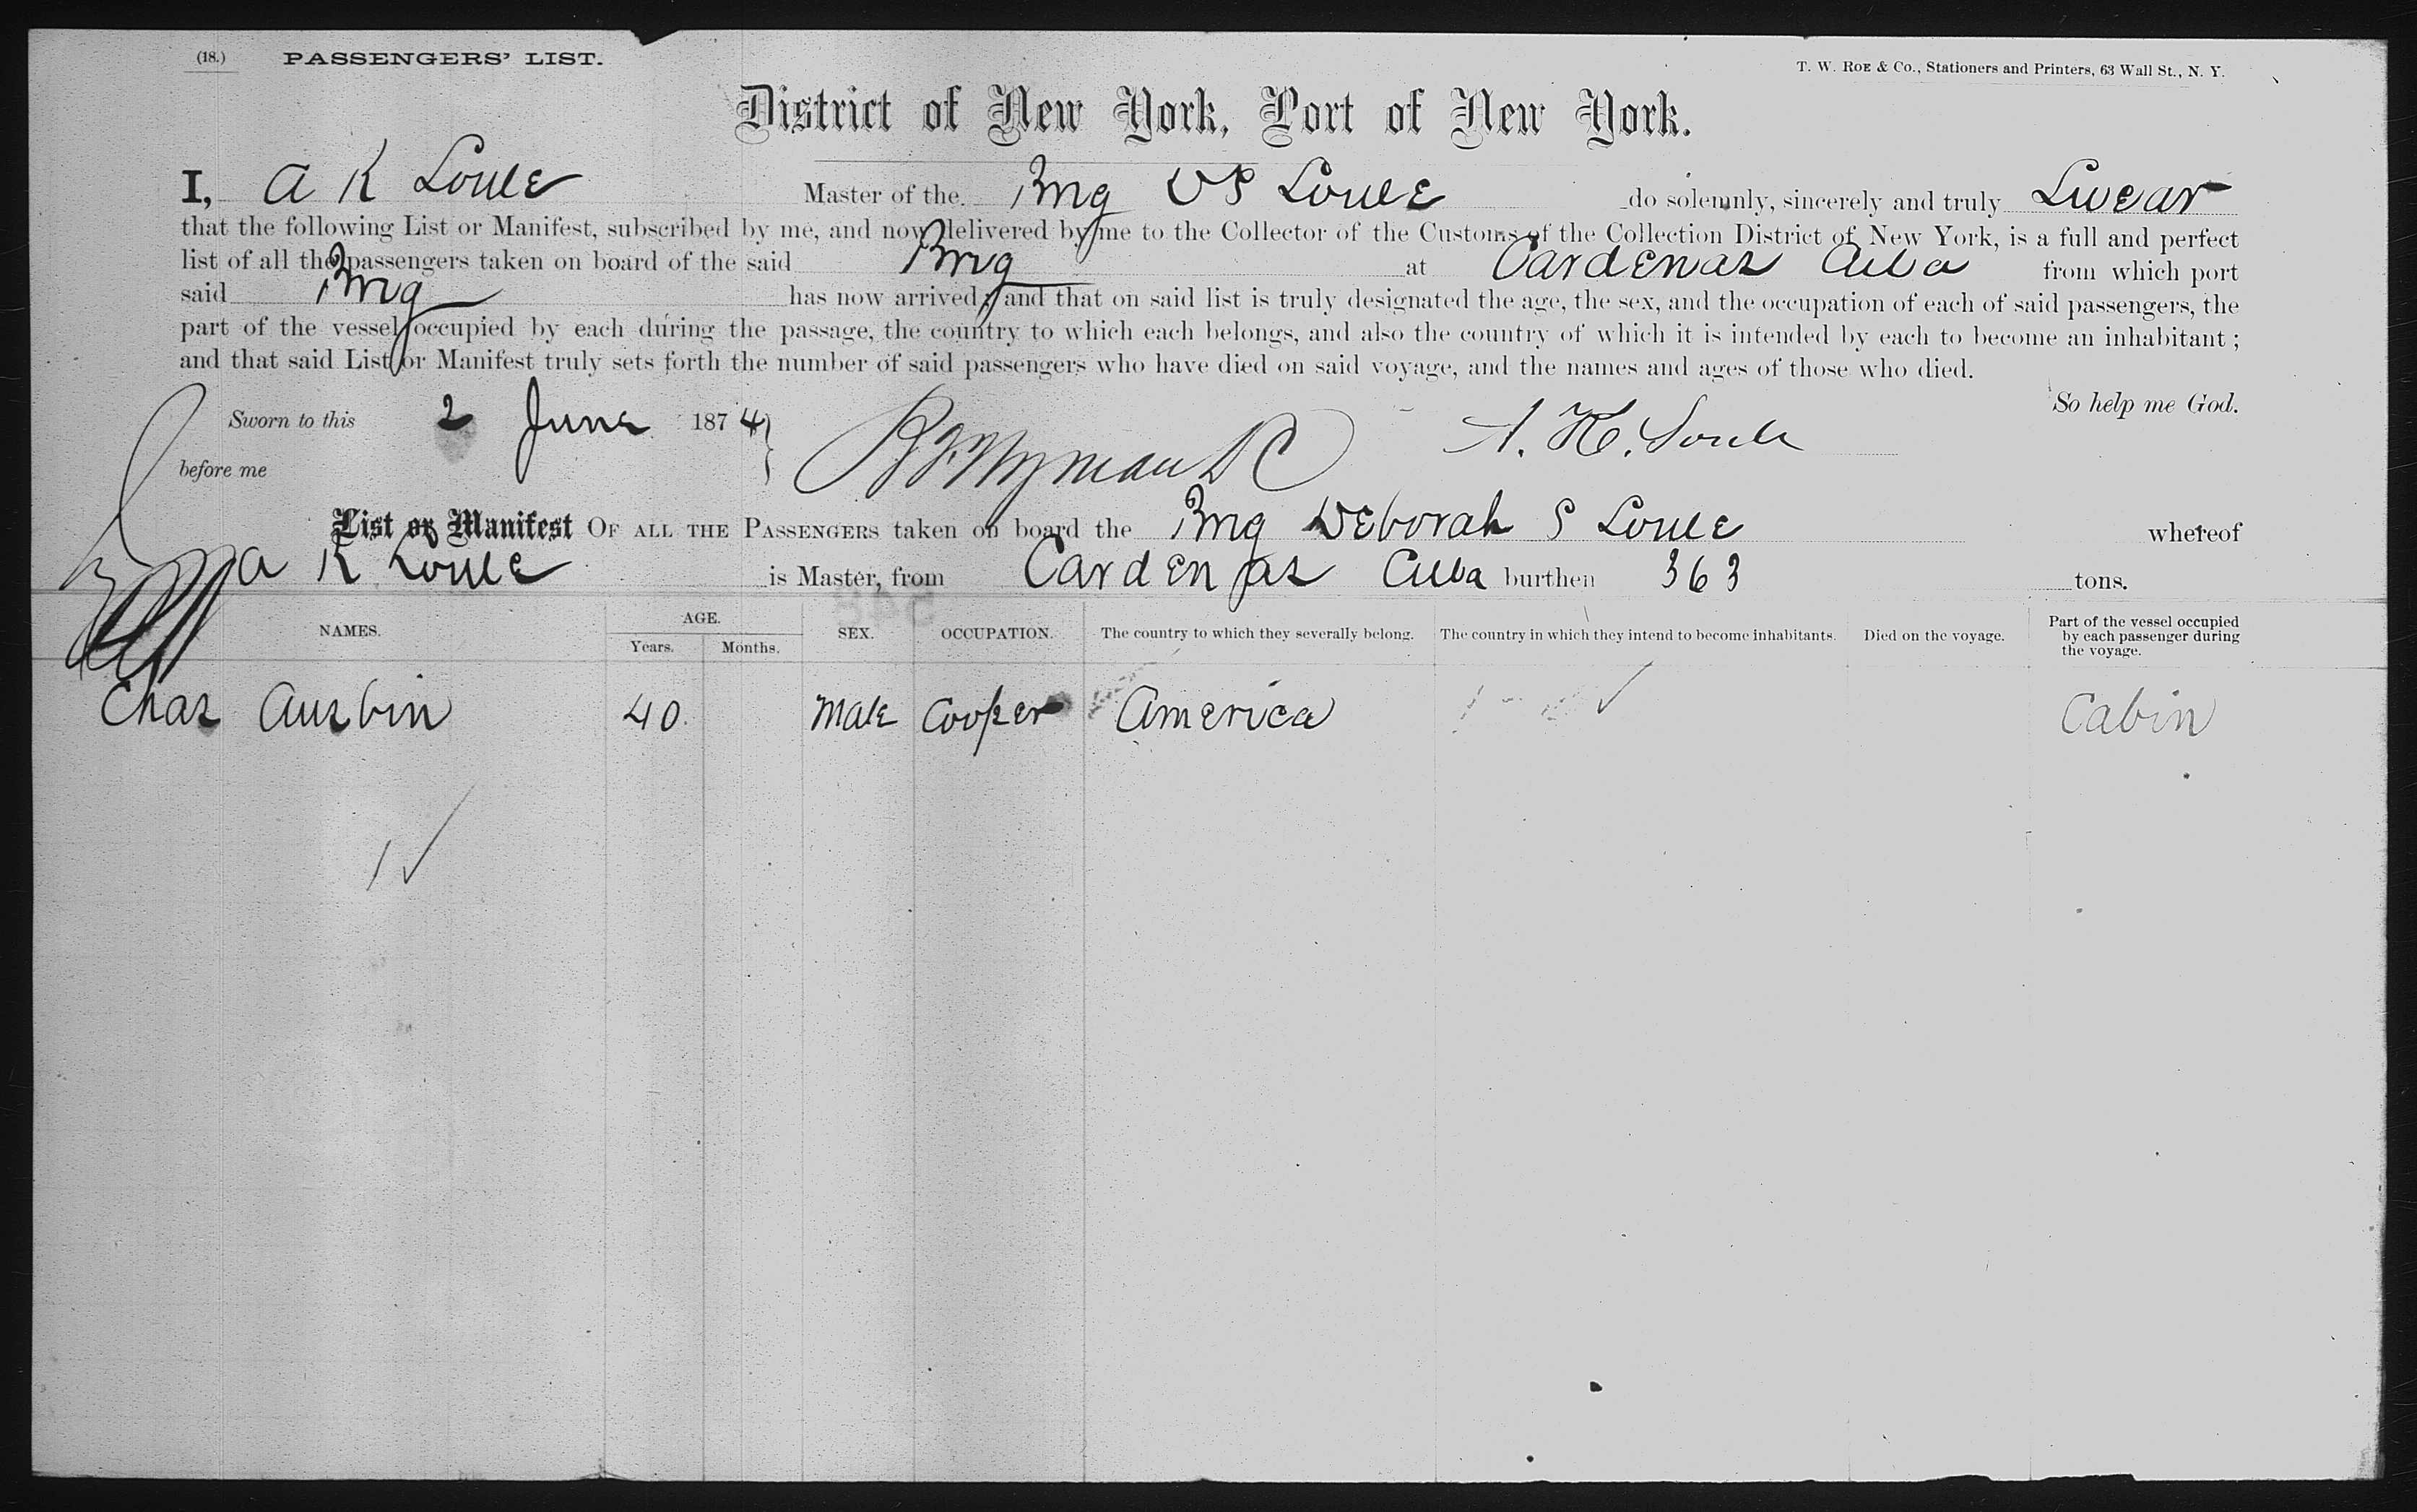 (18.) PASSENGERS' LIST.
T. W. ROE & Co., Stationers and Printers, 63 Wall St., N. Y.
District of New York, Port of New York.
I, A K Soule Master of the Brig D S Soule do solemnly, sincerely and truly Swear
that the following List or Manifest, subscribed by me, and now delivered by me to the Collector of the Customs of the Collection District of New York, is a full and perfect
list of all the passengers taken on board of the said Brig at Cardenas Cuba from which port
said Brig has now arrived; and that on said list is truly designated the age, the sex, and the occupation of each of said passengers, the
part of the vessel occupied by each during the passage, the country to which each belongs, and also the country of which it is intended by each to become an inhabitant;
and that said List or Manifest truly sets forth the number of said passengers who have died on said voyage, and the names and ages of those who died.
So help me God.
Sworn to this 2 June 1874 A. K. Soule
before me B F Wyman D C
List or Manifest OF ALL THE PASSENGERS taken on board the Brig Deborah S Soule whereof
A K Soule is Master, from Cardenas Cuba burthen 363 tons.
NAMES. AGE. Years. Months. SEX. OCCUPATION. The country to which they severally belong. The country in which they intend to become inhabitants. Died on the voyage. Part of the vessel occupied by each passenger during the voyage.
Chas Austin 40 Male Cooper America Cabin
1 ✓